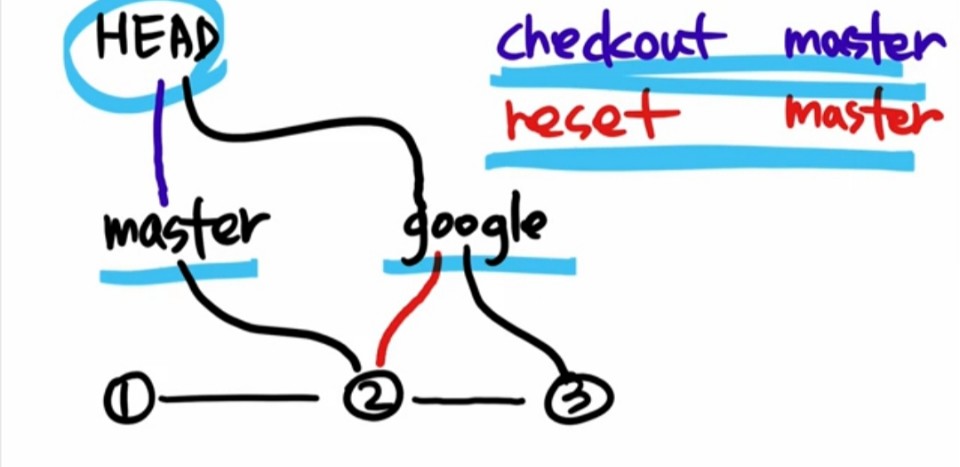 HEAD
checkout master
reset master
master google
① ② ③